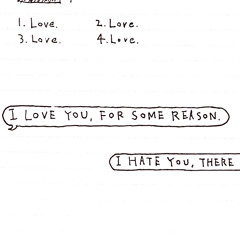 1. Love. 2. Love.
3. Love. 4. Love.
I LOVE YOU, FOR SOME REASON.
I HATE YOU, THERE